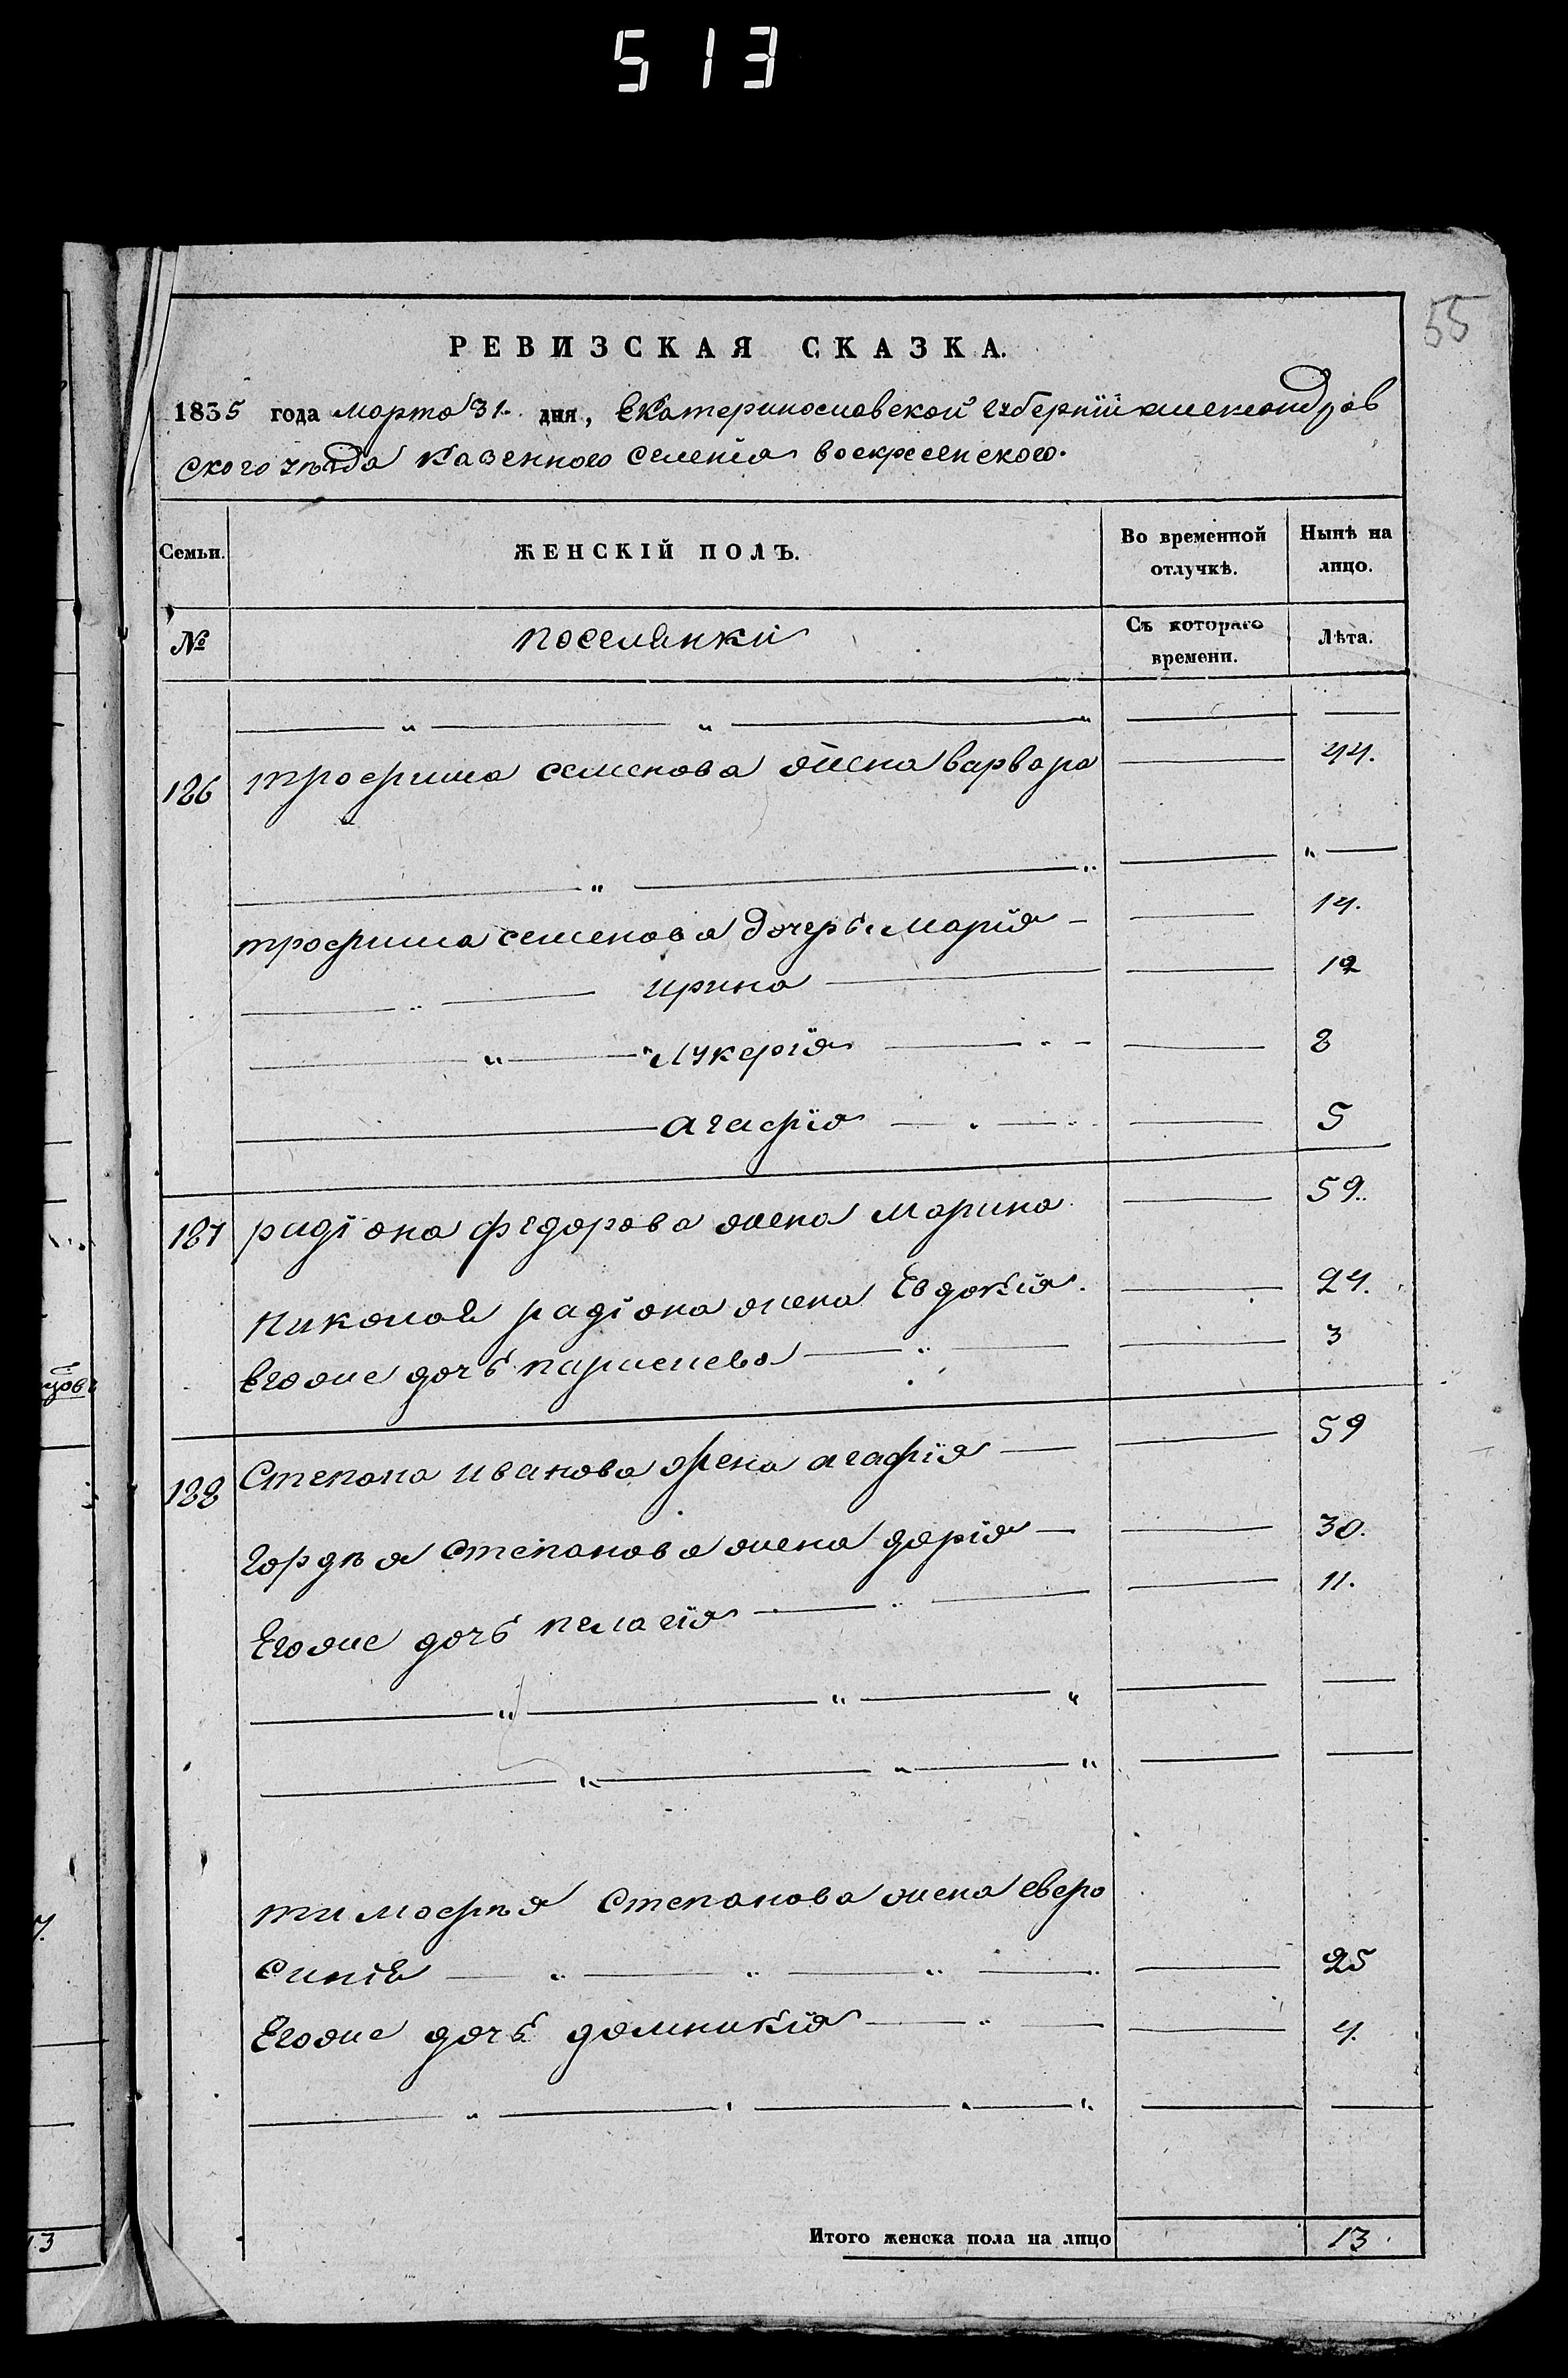 513
55
РЕВИЗСКАЯ СКАЗКА.
1835 года марта 31. дня, Екатеринославской губерніи александров
ского уѣзда казенного селенія воскресенского.
Семьи.
ЖЕНСКІЙ ПОЛЪ.
Во временной отлучкѣ.
Нынѣ на лицо.
№
поселянки
Съ котораго времени.
Лѣта.
186 трофима семенова жена варвара 44.
трофима семенова дочерь марія 14.
ирина 12
лукерія 8
агафія 5
187 радіона федорова жена марина 59.
николая радіона жена Евдокія. 24.
Егоже дочь парасцева 3
188 Степана иванова жена агафія 59
гордѣя Степанова жена дарія 30.
Егоже дочь пелагія 11.
тимофѣя Степанова жена евро
синія 25
Егоже дочь домникія 4.
Итого женска пола на лицо 13.
13